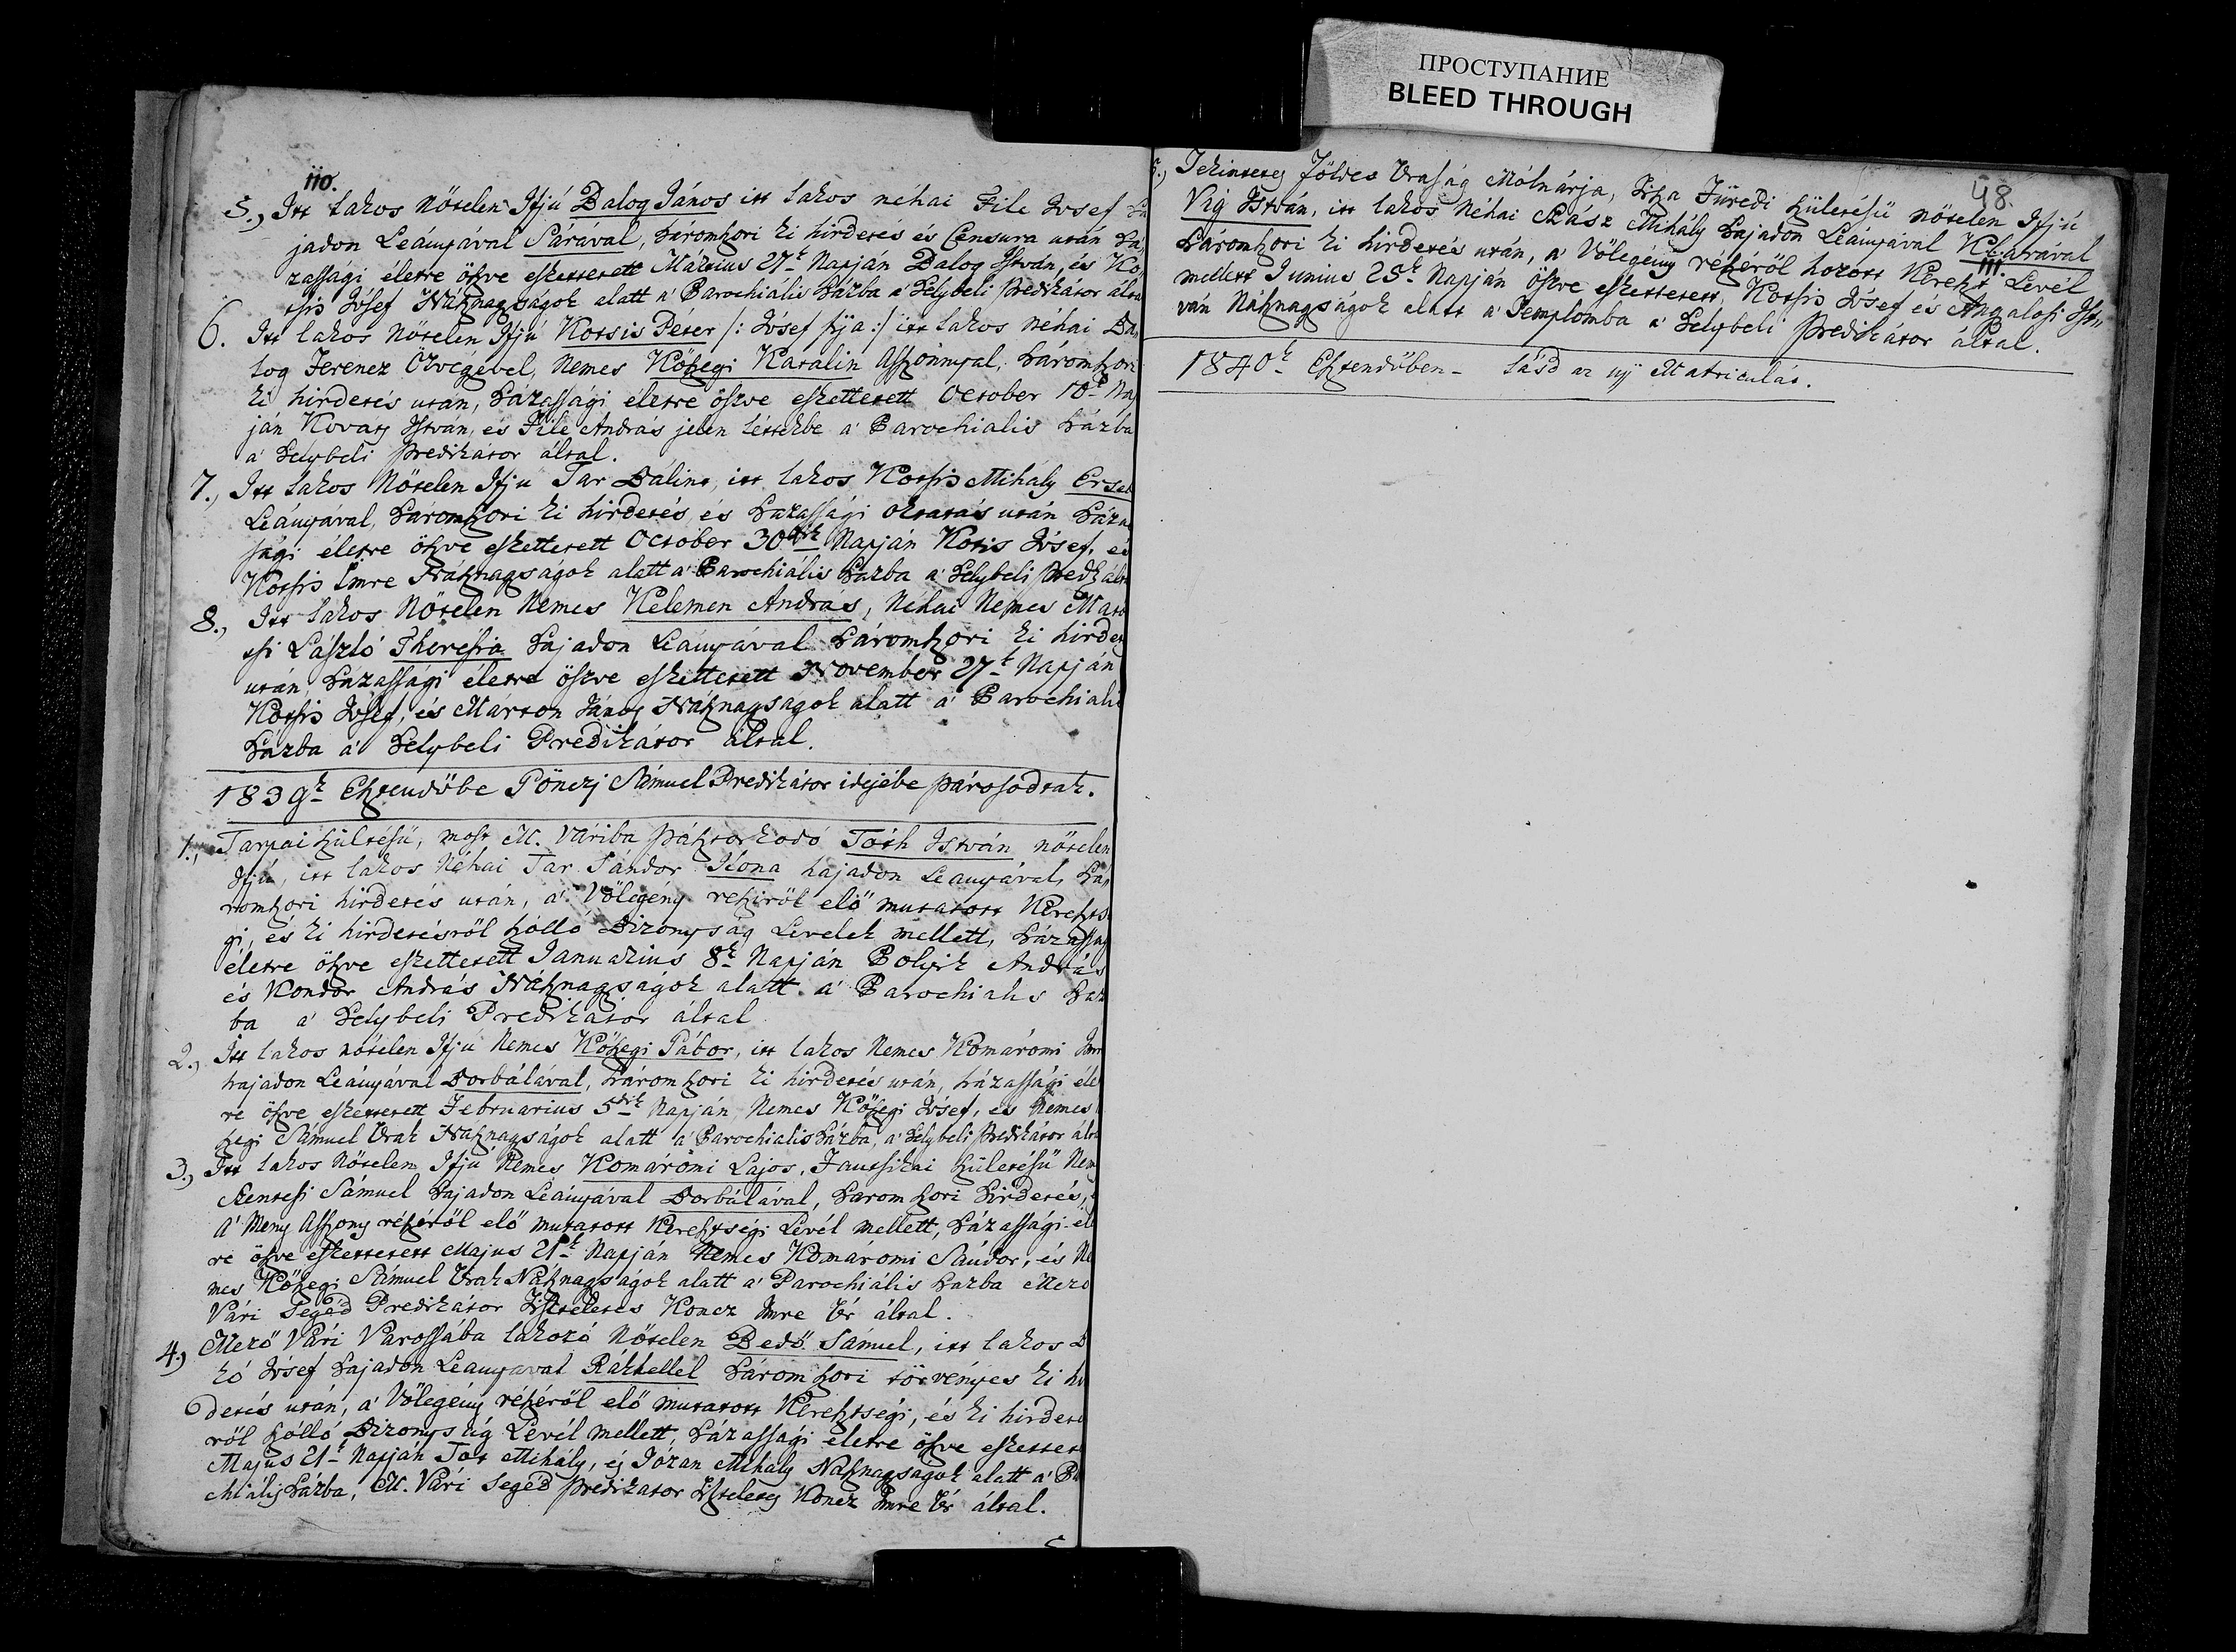 ПРОСТУПАНИЕ
BLEED THROUGH
110.
5., Itt lakos Nőtelen Ifjú Balog János itt lakos néhai File Josef Ha
jadon Leányával Sárával, háromszori ki hirdetés és Censura után Há
zassági életre öszve eskettetett Mártius 27k Napján Balog István, és Ko
tsis Jósef Násznagyságok alatt a' Parochiális Házba a' Helybeli Predikátor álta
6. Itt lakos Nőtelen Ifjú Kotsis Péter /: Jósef fija :/ itt lakos néhai Ba
log Ferencz Özvegyével, Nemes Kőszegi Katalin Aszszonnyal, Háromszori
ki hirdetés után, Házassági életre öszve eskettetett October 10k Na
ján Kovats István, és File András jelen léttekbe a' Parochialis Házba
a' Helybeli Predikator által.
7., Itt lakos Nőtelen Ifju Tar Bálint, itt lakos Kotsis Mihály Erse
Leányával, Háromszori ki hirdetés, és Házassági oktatás után Háza
sági életre öszve eskettetett October 30dik Napján Kotsis Jósef, és
Kotsis Imre Násznagyságok alatt a' Parochiális Házba a' Helybeli Predk álta
8., Itt lakos Nőtelen Nemes Kelemen András, Néhai Nemes
László Theresia Hajadon Leányával Háromszori ki hirdet
után, Házassági életre öszve eskettetett November 27k Napján
Kotsis Jósef, és Márton János Násznagyságok alatt a' Parochiali
Házba a' Helybeli Predikátor által.
1839k Esztendőbe Pönczj Sámuel Predikátor idejébe párosodtak.
1., Tarpai születésű, most M. Váriba Pásztorkodó Tóth István nőtelen
Ifjú, itt lakos Néhai Tar Sándor Ilona hajadon Leányával, Há
romszori hirdetés után, a' Vőlegény részéről elő mutatott Kereszts
gi, és ki hirdetésről szólló Bizonyság Levelek mellett, Házassag
életre öszve eskettetett Januarius 8k Napján Bolyik András
és Kondor András Násznagyságok alatt a' Parochialis Ház
ba a' Helybeli Predikátor által
2., Itt lakos nőtelen Ifju Nemes Kőszegi Gábor, itt lakos Nemes Komáromi Imr
hajadon Leányával Borbálával, Háromszori ki hirdetés után, házassági éle
re öszve eskettetett Februarius 5dik Napján Nemes Kőszegi Jósef, és Nemes
szegi Sámuel Urak Násznagyságok alatt a' Parochialis Házba, a' Helybeli Predikátor álta
3., Itt lakos Nőtelen Ifjú Nemes Komáromi Lajos, Jantsikai születésű Nem
Szentesi Sámuel Hajadon Leányával Borbálával, Háromszori Hirdetés,
a' Meny Aszszony részéről elő mutatott Keresztségi Levél mellett, Házassági éle
re öszve eskettetett Majus 21k Napján Nemes Komáromi Sándor, és Ne
mes Kőszegi Sámuel Urak Násznagyságok alatt a' Parochiális Házba Mező
Vári Segéd Predikátor Tiszteletes Koncz Imre Úr által.
4., Mező Vári Varossába lakozó Nőtelen Bedő Sámuel, itt lakos B
kó Jósef Hajadon Leanyával Rákhellel Háromszori törvényes ki hi
detés után, a' Vőlegény részéről elő mutatott Keresztségi, és ki hirdeté
ről szólló Bizonyság Levél mellett, Házassági életre öszve eskettet
Majus 21k Napján Tot Mihály, és Józan Mihály Násznagyságok alatt a' Pa
chiális Házba, M. Vári Segéd Predikator Tiszteletes Koncz Imre Úr által.
48.
111.
5., Tekintetes Földes Uraság Mólnárja, Tisza Füredi születésű nőtelen Ifjú
Vig István, itt lakos Néhai Szász Mihály Hajadon Leányával Klárával
Háromszori ki hirdetés után, a' Vőlegény részéről hozott Kereszt Levél
mellett Junius 25k Napján öszve eskettetett, Kotsis Jósef és Angalosi Ist,,
ván Násznagyságok alatt a' Templomba a' Helybeli Predikátor által.
1840k Esztendőben - lásd az uj Matriculát.